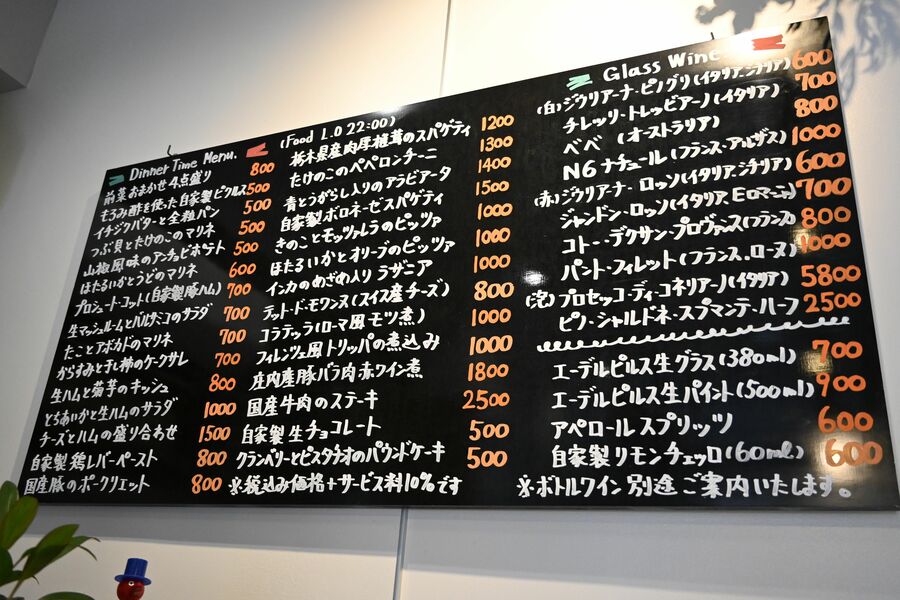 Dinner Time Menu.
前菜おまかせ4点盛り 800
もろみ酢を使った自家製ピクルス 500
イチジクバターと全粒パン 500
つぶ貝とたけのこのマリネ 500
山椒風味のアンチョビポテト 500
ほたるいかとうどのマリネ 600
プロシュート・コット(自家製豚ハム) 700
生マッシュルームとバルサミコのサラダ 700
たことアボカドのマリネ 700
からすみと干し柿のケークサレ 700
生ハムと菊芋のキッシュ 800
とちあいかと生ハムのサラダ 1000
チーズとハムの盛り合わせ 1500
自家製鶏レバーペースト 800
国産豚のポークリエット 800
(Food L.O 22:00)
栃木県産肉厚椎茸のスパゲティ 1200
たけのこのペペロンチーニ 1300
青とうがらし入りのアラビアータ 1400
自家製ボロネーゼスパゲティ 1500
きのことモッツァレラのピッツァ 1000
ほたるいかとオリーブのピッツァ 1000
インカのめざめ入りラザニア 1000
テット・ド・モワンヌ(スイス産チーズ) 800
コラテッラ(ローマ風モツ煮) 1000
フィレンツェ風トリッパの煮込み 1000
庄内産豚バラ肉赤ワイン煮 1800
国産牛肉のステーキ 2500
自家製生チョコレート 500
クランベリーとピスタチオのパウンドケーキ 500
※税込み価格+サービス料10%です
Glass Wine
(白)ジウリアーナ・ピノグリ(イタリア.シチリア) 600
チレッリ・トレッビアーノ(イタリア) 700
ベベ (オーストラリア) 800
N6 ナチュール(フランス・アルザス) 1000
(赤)ジウリアーナ・ロッソ(イタリア.シチリア) 600
ジャンドン・ロッソ(イタリア.エロマーニャ) 700
コトー・デクサン・プロヴァンス(フランス) 800
パント・フィレット(フランス,ローヌ) 1000
(泡)プロセッコ・ディ・コネリアーノ(イタリア) 5800
ピノ・シャルドネ・スプマンテ・ハーフ 2500
エーデルピルス生グラス(380ml) 700
エーデルピルス生パイント(500ml) 900
アペロールスプリッツ 600
自家製リモンチェッロ(60ml) 600
※ボトルワイン別途ご案内いたします。